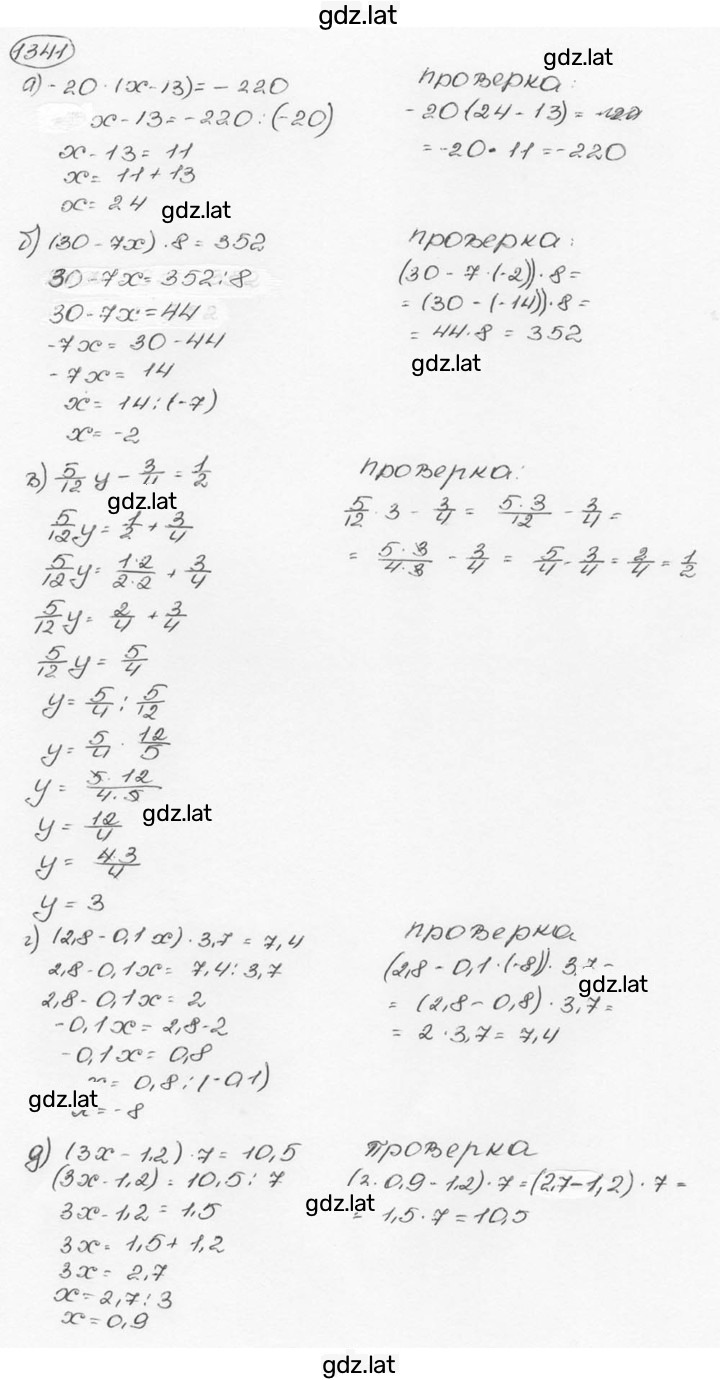 gdz.lat
1341
gdz.lat
а) -20 · (x-13) = -220
проверка:
x-13 = -220 : (-20)
-20(24-13) =
x-13 = 11
= -20 · 11 = -220
x = 11+13
x = 24
gdz.lat
б) (30-7x) · 8 = 352
проверка:
30-7x = 352:8
(30 - 7·(-2))·8 =
30-7x = 44
= (30-(-14))·8 =
-7x = 30-44
= 44·8 = 352
gdz.lat
-7x = 14
x = 14:(-7)
x = -2
в) 5/12 y - 3/4 = 1/2
проверка:
gdz.lat
5/12 y = 1/2 + 3/4
5/12 · 3 - 3/4 = 5·3/12 - 3/4 =
5/12 y = 1·2/2·2 + 3/4
= 5·3/4·3 - 3/4 = 5/4 - 3/4 = 2/4 = 1/2
5/12 y = 2/4 + 3/4
5/12 y = 5/4
y = 5/4 : 5/12
y = 5/4 · 12/5
y = 5·12/4·5
gdz.lat
y = 12/4
y = 4·3/4
y = 3
г) (2,8-0,1x)·3,7 = 7,4
проверка
2,8-0,1x = 7,4:3,7
(2,8-0,1·(-8))·3,7 =
gdz.lat
2,8-0,1x = 2
= (2,8-0,8)·3,7 =
-0,1x = 2,8-2
= 2·3,7 = 7,4
-0,1x = 0,8
x = 0,8:(-0,1)
gdz.lat
x = -8
д) (3x-1,2)·7 = 10,5
проверка
(3x-1,2) = 10,5:7
(3·0,9-1,2)·7 = (2,7-1,2)·7 =
gdz.lat
3x-1,2 = 1,5
= 1,5·7 = 10,5
3x = 1,5+1,2
3x = 2,7
x = 2,7:3
x = 0,9
gdz.lat